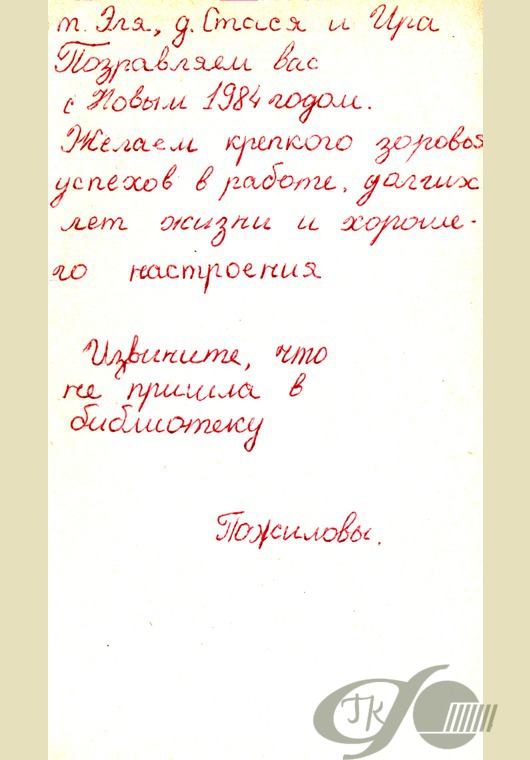 т. Эля, д. Стася и Ира
Поздравляем вас
с Новым 1984 годом.
Желаем крепкого здоровья
успехов в работе, долгих
лет жизни и хороше-
го настроения
Извините, что
не пришла в
библиотеку
Пожиловы.
ГК